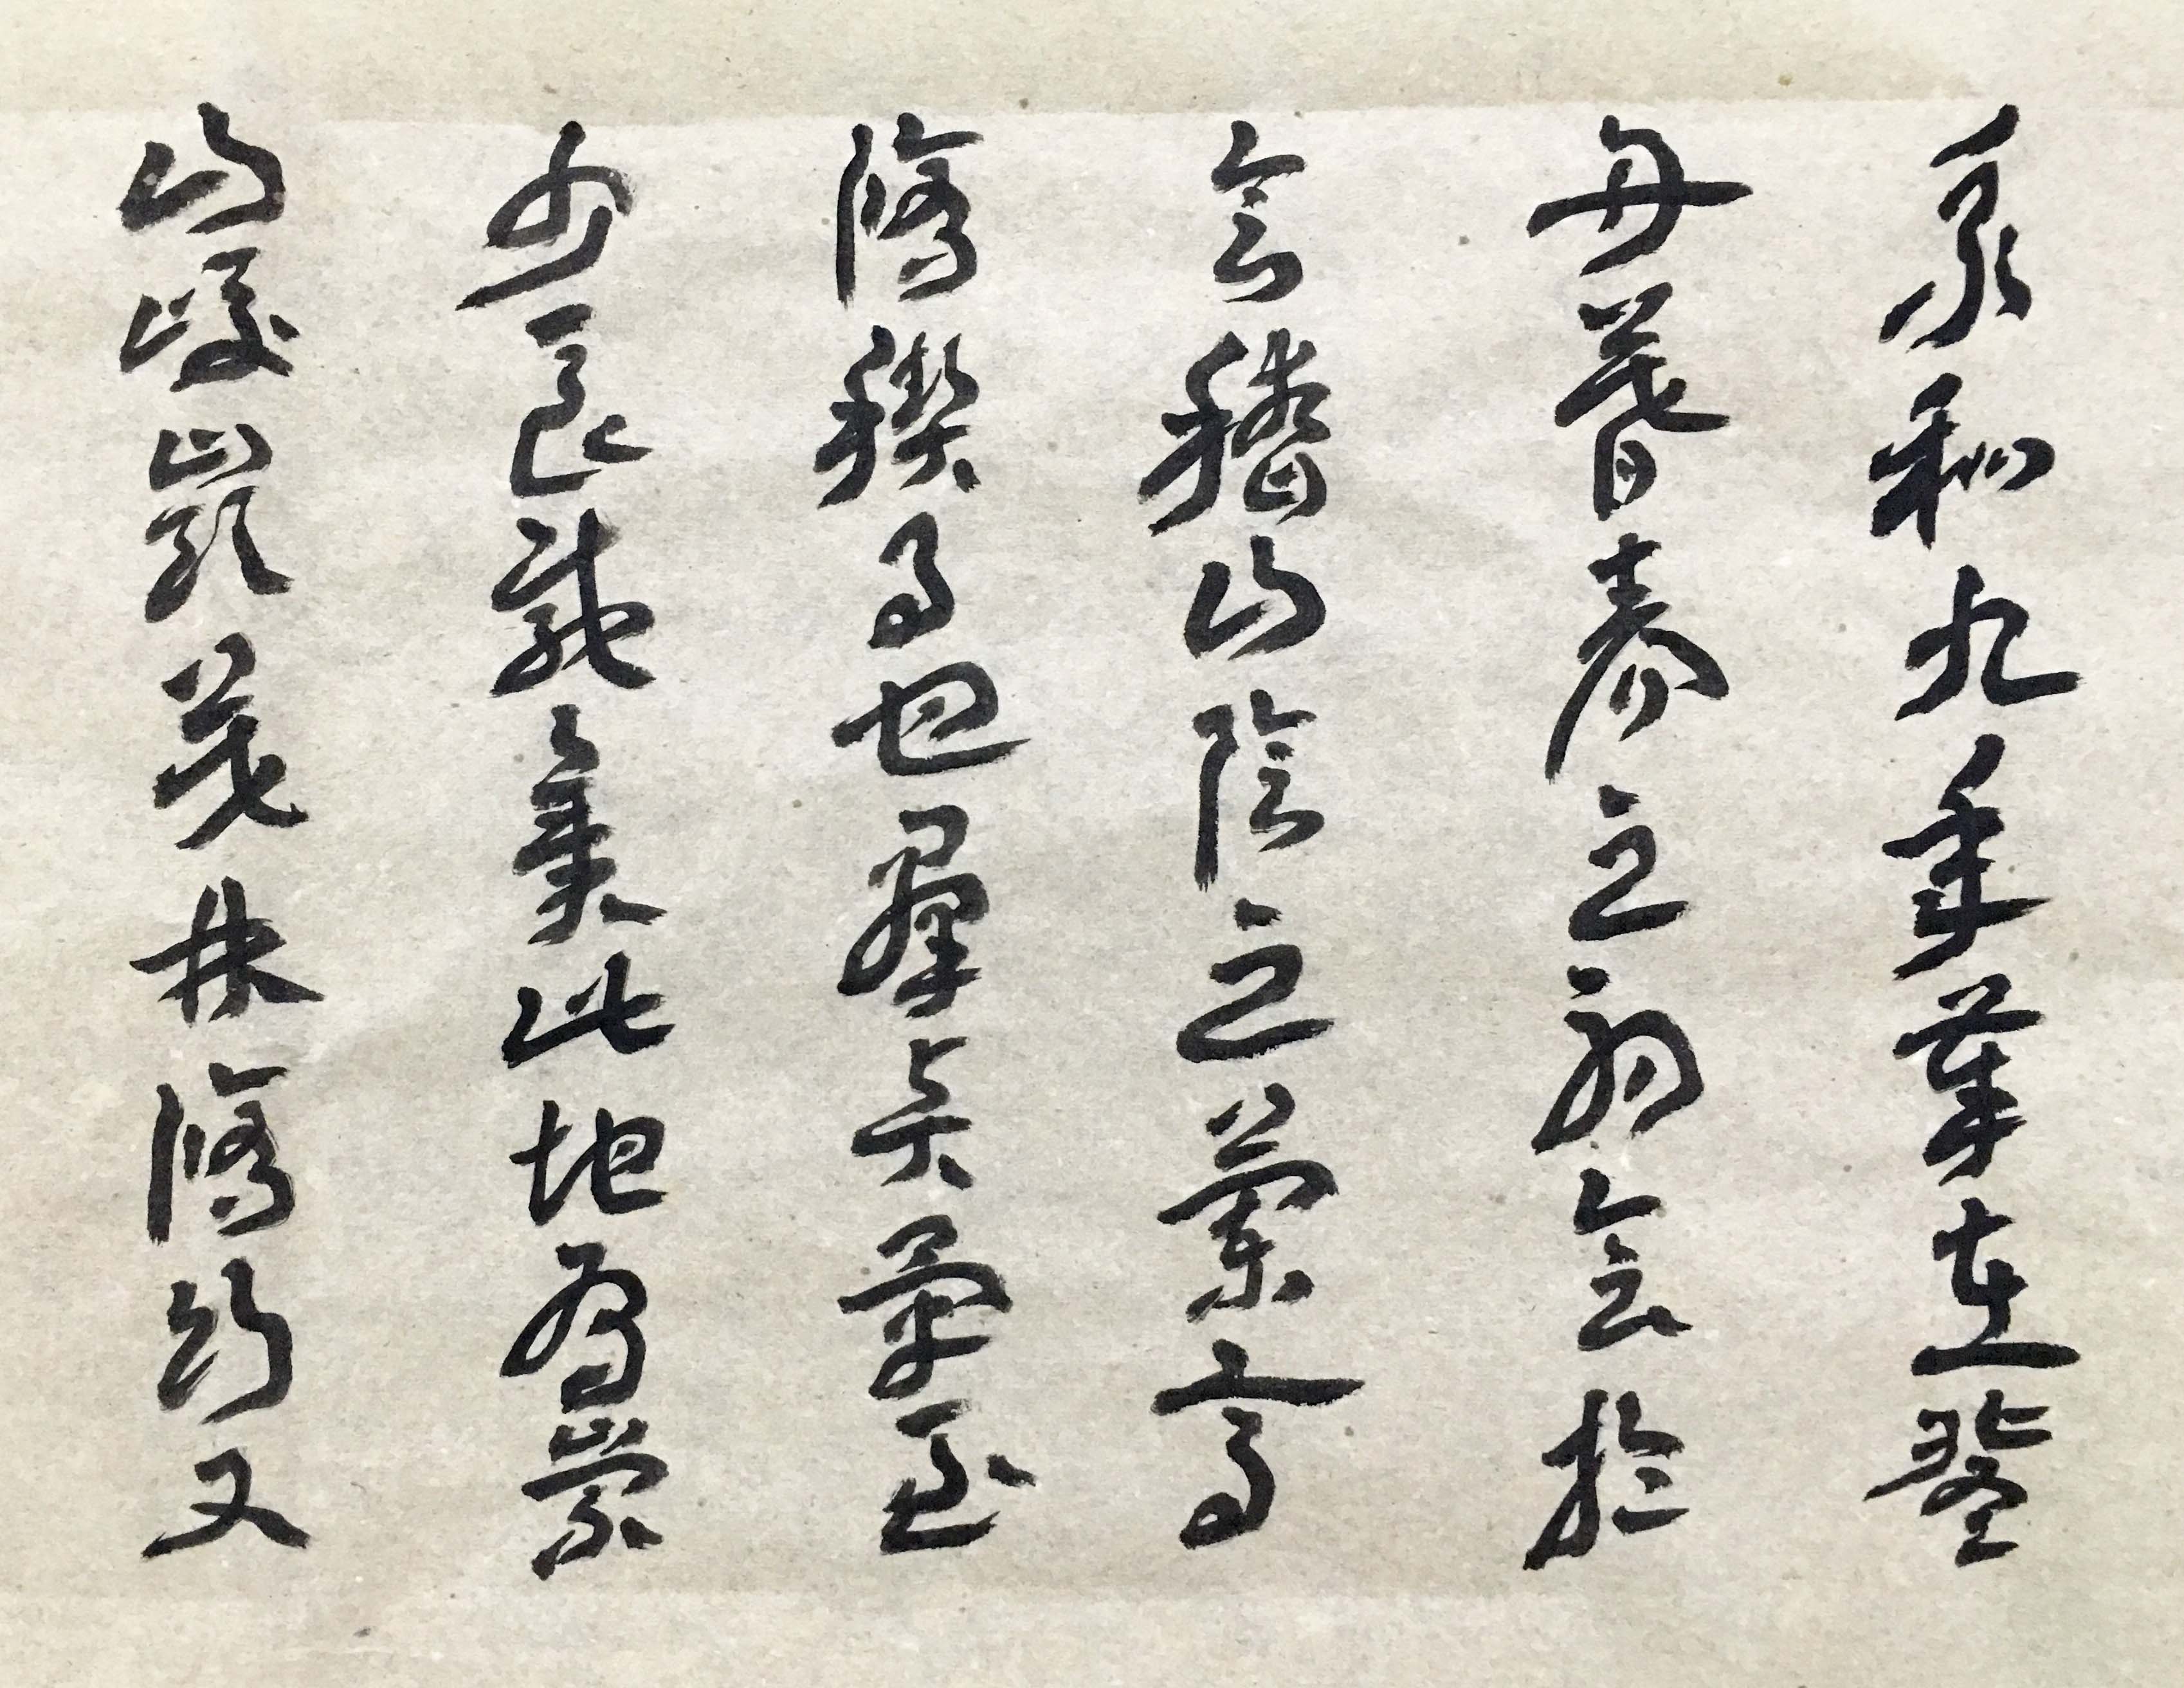 永和九年歲在癸
丑暮春之初會於
會稽山陰之蘭亭
脩稧事也羣賢畢至
少長咸集此地有崇
山峻嶺茂林脩竹又